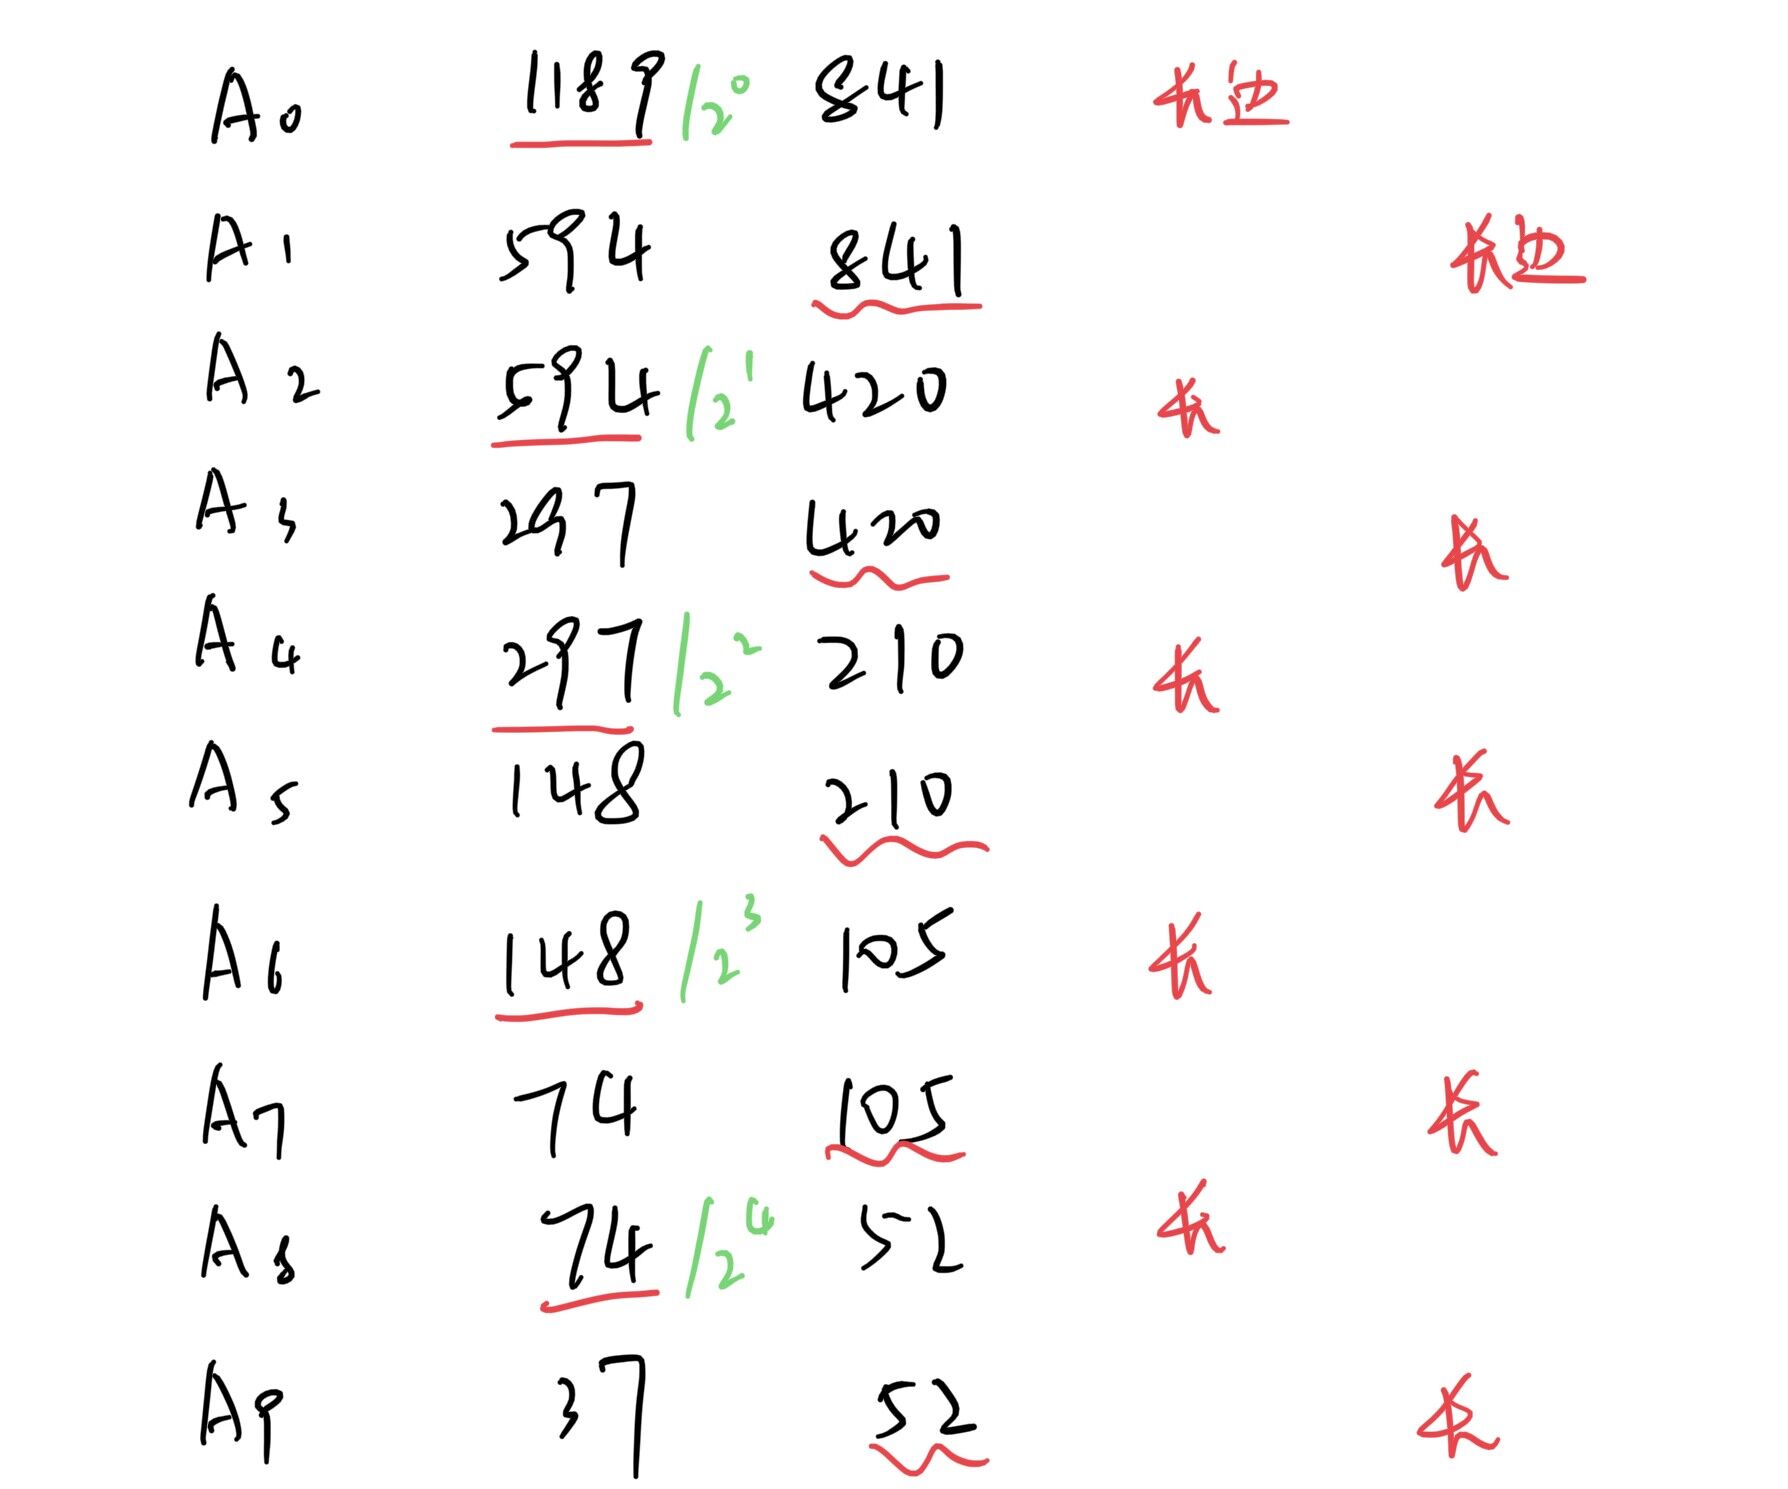 A0 1189 /2^0 841 长边
A1 594 841 长边
A2 594 /2^1 420 长
A3 297 420 长
A4 297 /2^2 210 长
A5 148 210 长
A6 148 /2^3 105 长
A7 74 105 长
A8 74 /2^4 52 长
A9 37 52 长